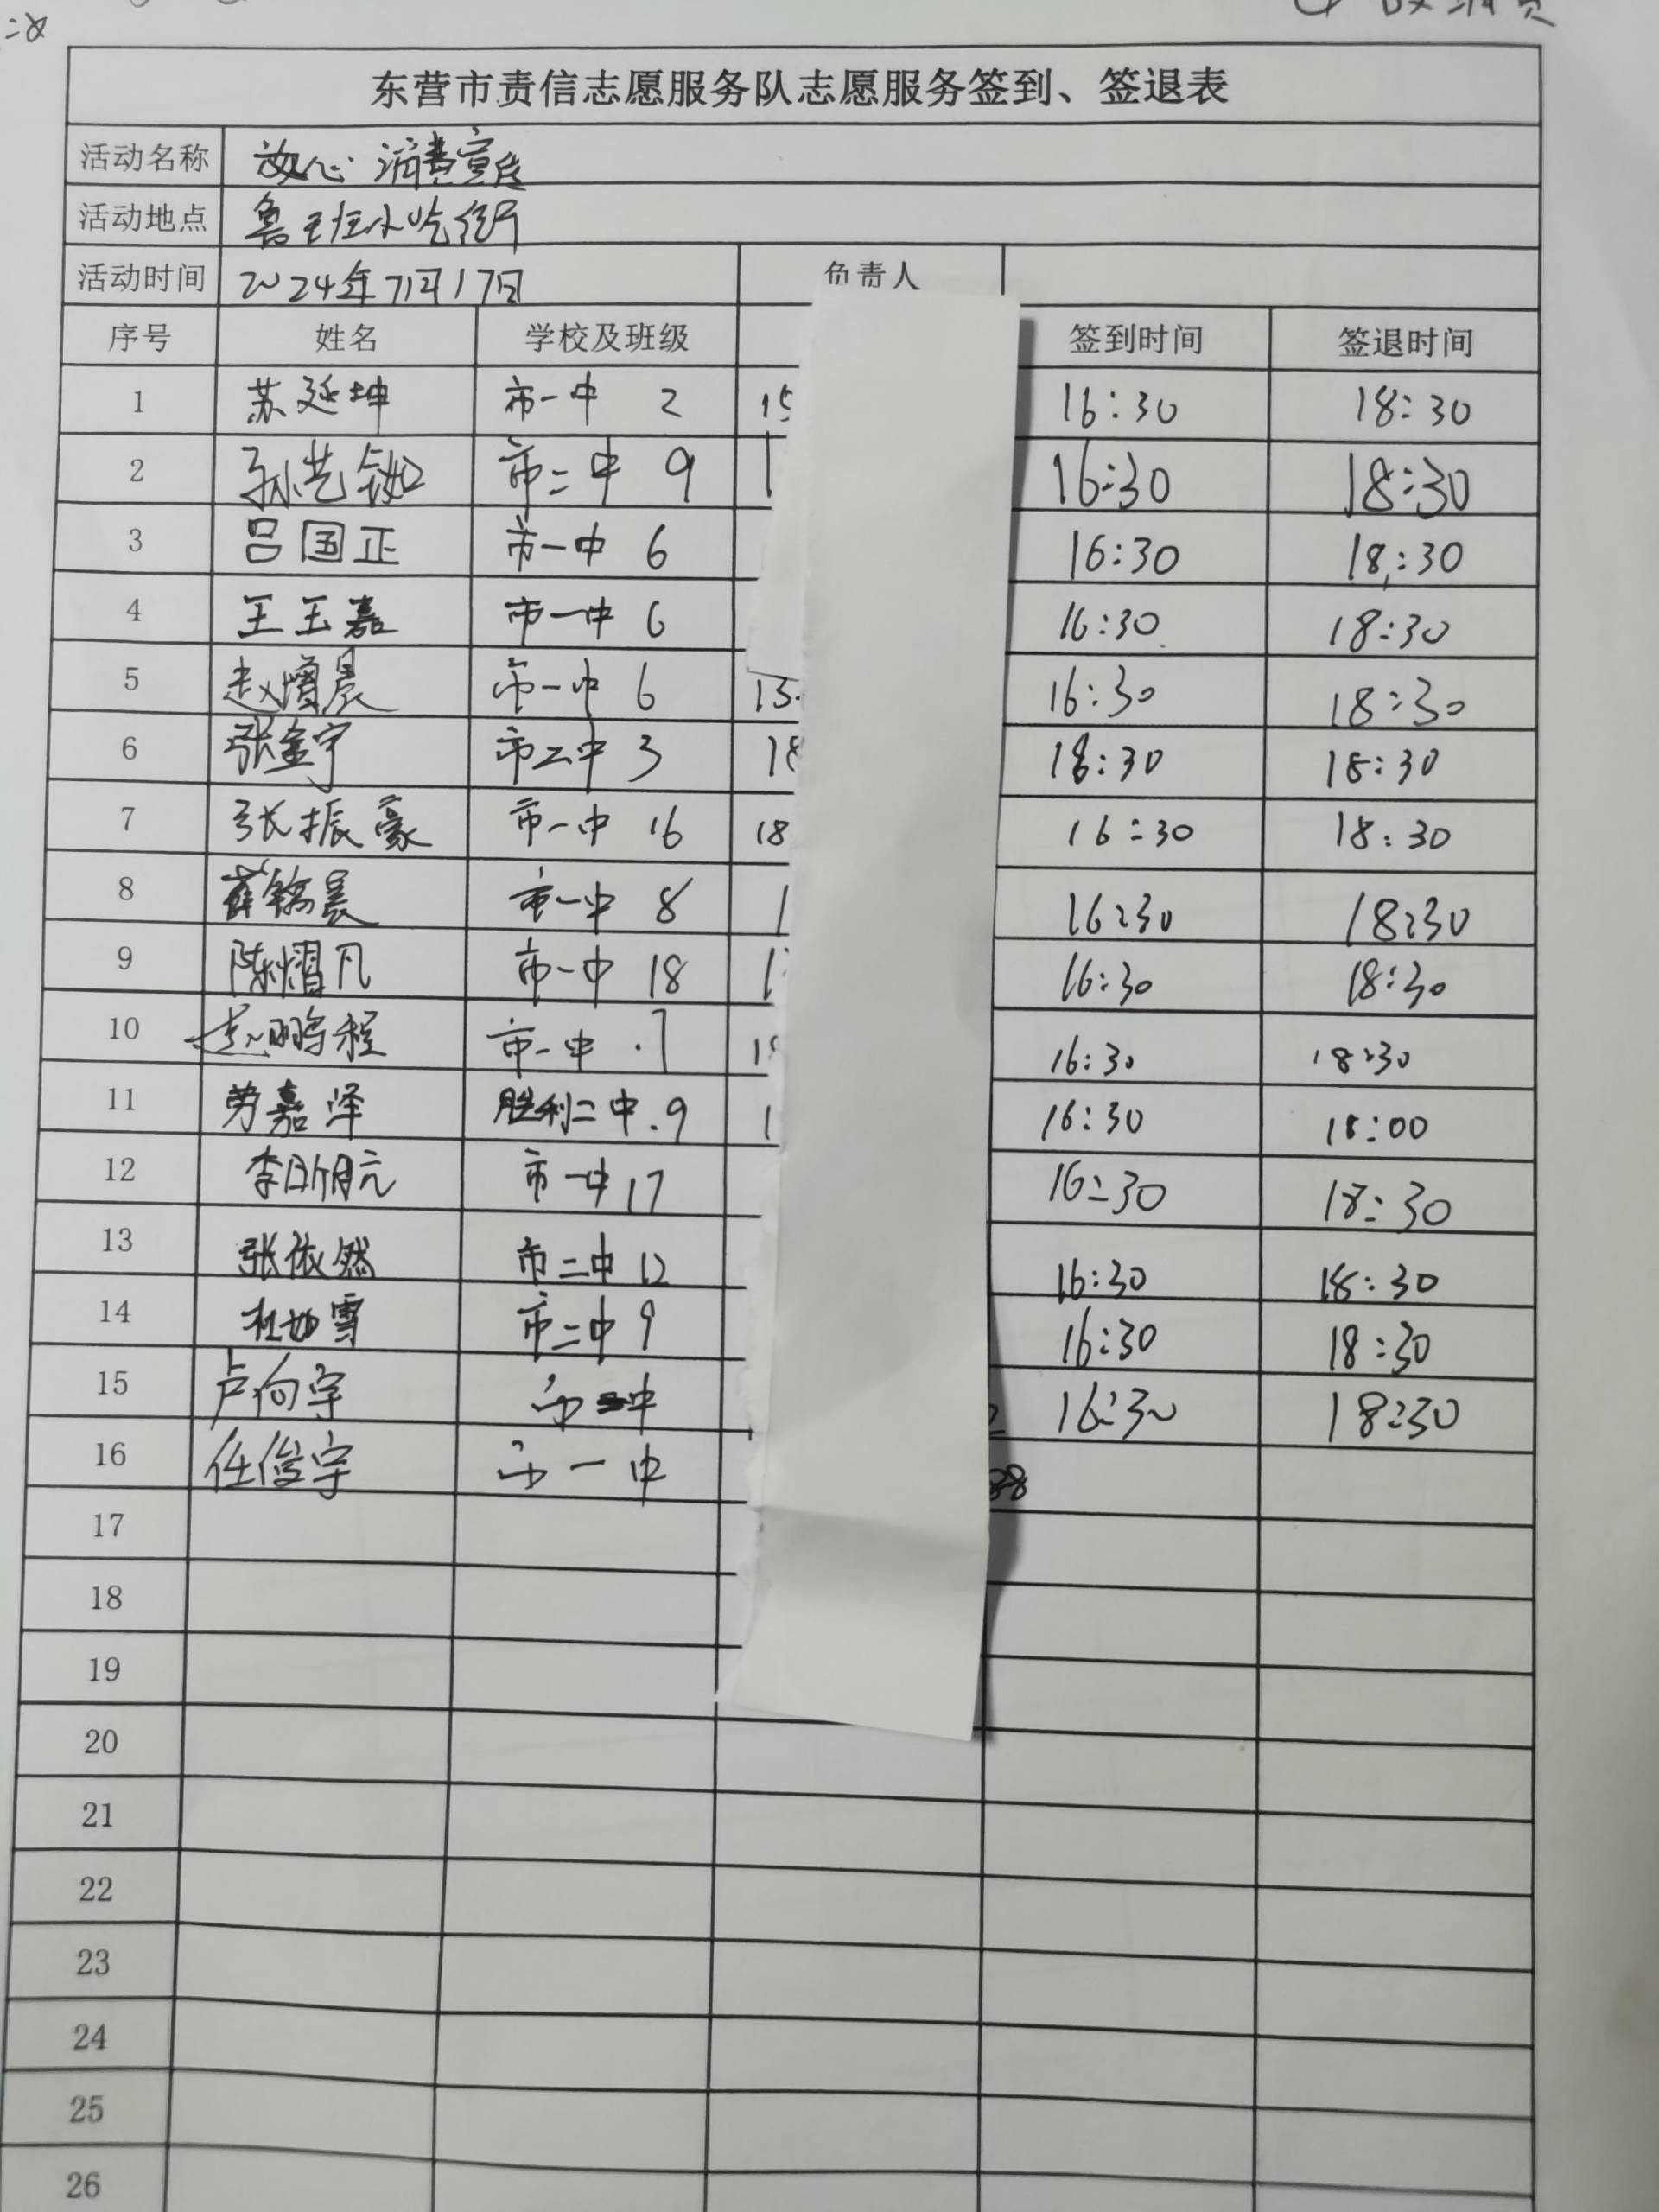 东营市责信志愿服务队志愿服务签到、签退表
活动名称 放心消费宣传
活动地点 鲁班小吃街
活动时间 2024年7月17日 负责人
序号 姓名 学校及班级 签到时间 签退时间
1 苏延坤 市一中 2 15 16:30 18:30
2 孙艺铷 市二中 9 1 16:30 18:30
3 吕国正 市一中 6 16:30 18:30
4 王玉嘉 市一中 6 16:30 18:30
5 赵增晨 市一中 6 13 16:30 18:30
6 张金宇 市二中 3 18 18:30 18:30
7 张振豪 市一中 16 18 16:30 18:30
8 薛铭晨 市一中 8 1 16:30 18:30
9 陈熠凡 市一中 18 1 16:30 18:30
10 赵鹏程 市一中 .7 16:30 18:30
11 劳嘉泽 胜利二中.9 1 16:30 18:00
12 李明元 市一中 17 16:30 18:30
13 张依然 市二中 12 16:30 18:30
14 杜如雪 市二中 9 16:30 18:30
15 卢向宇 市中 16:30 18:30
16 任俊宇 市一中 88
17
18
19
20
21
22
23
24
25
26